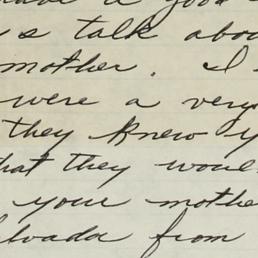 a good
s talk abou
mother. I
were a very
they knew y
hat they woul
your mothe
lvada from